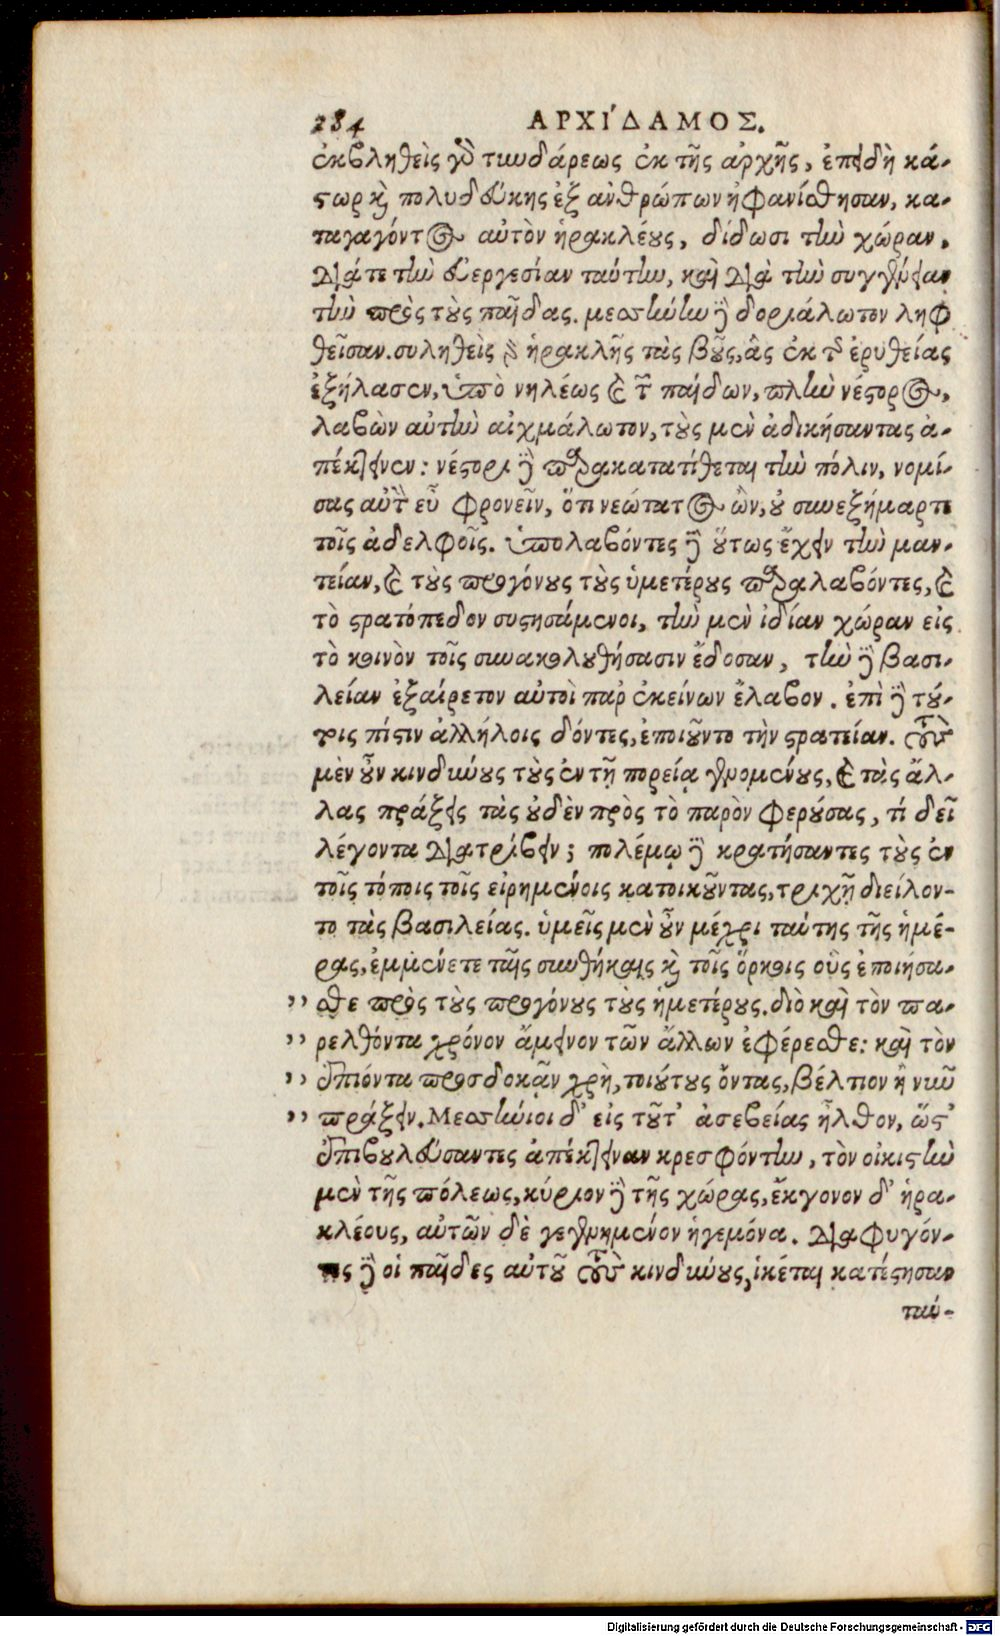 284 ΑΡΧΙ´ΔΑΜΟΣ.
ἐκβληθεὶς γὰρ τυνδάρεως ἐκ τῆς ἀρχῆς, ἐπειδὴ κά-
στωρ καὶ πολυδεύκης ἐξ ἀνθρώπων ἠφανίσθησαν, κα-
ταγαγόντος αὐτὸν ἡρακλέους, δίδωσι τὴν χώραν,
διάτε τὴν εὐεργεσίαν ταύτην, καὶ διὰ τὴν συγγένειαν
τὴν πρὸς τοὺς παῖδας. μεσσήνην δὲ δοριάλωτον ληφ
θεῖσαν. συληθεὶς γὰρ ἡρακλῆς τὰς βοῦς, ἃς ἐκ τῆς ἐρυθείας
ἐξήλασεν, ὑπὸ νηλέως καὶ τῶν παίδων, πλὴν νέστορος,
λαβὼν αὐτὴν αἰχμάλωτον, τοὺς μὲν ἀδικήσαντας ἀ-
πέκτεινεν: νέστορι δὲ παρακατατίθεται τὴν πόλιν, νομί-
σας αὐτὸν εὖ φρονεῖν, ὅτι νεώτατος ὢν, οὐ συνεξήμαρτε
τοῖς ἀδελφοῖς. ὑπολαβόντες δὲ οὕτως ἔχειν τὴν μαν-
τείαν, καὶ τοὺς προγόνους τοὺς ὑμετέρους παραλαβόντες, καὶ
τὸ στρατόπεδον συστησάμενοι, τὴν μὲν ἰδίαν χώραν εἰς
τὸ κοινὸν τοῖς συνακολουθήσασιν ἔδοσαν, τὴν δὲ βασι-
λείαν ἐξαίρετον αὐτοὶ παρ ἐκείνων ἔλαβον. ἐπὶ δὲ τού-
τοις πίστιν ἀλλήλοις δόντες, ἐποιοῦντο τὴν στρατείαν. τοὺς
μὲν οὖν κινδύνους τοὺς ἐν τῇ πορείᾳ γενομένους, καὶ τὰς ἄλ-
λας πράξεις τὰς οὐδὲν πρὸς τὸ παρὸν φερούσας, τί δεῖ
λέγοντα διατρίβειν; πολέμῳ δὲ κρατήσαντες τοὺς ἐν
τοῖς τόποις τοῖς εἰρημένοις κατοικοῦντας, τριχῇ διείλον-
το τὰς βασιλείας. ὑμεῖς μὲν οὖν μέχρι ταύτης τῆς ἡμέ-
ρας, ἐμμένετε ταῖς συνθήκαις καὶ τοῖς ὅρκοις οὓς ἐποιήσα-
„ σθε πρὸς τοὺς προγόνους τοὺς ἡμετέρους. διὸ καὶ τὸν πα-
„ ρελθόντα χρόνον ἄμεινον τῶν ἄλλων ἐφέρεσθε: καὶ τὸν
„ ἐπιόντα προσδοκᾶν χρὴ, τοιούτους ὄντας, βέλτιον ἢ νῦν
„ πράξειν. Μεσσήνιοι δ' εἰς τοῦτ' ἀσεβείας ἦλθον, ὥστ'
ἐπιβουλεύσαντες ἀπέκτειναν κρεσφόντην, τὸν οἰκιστὴν
μὲν τῆς πόλεως, κύριον δὲ τῆς χώρας, ἔκγονον δ' ἡρα-
κλέους, αὐτῶν δὲ γεγενημένον ἡγεμόνα. διαφυγόν-
τες δὲ οἱ παῖδες αὐτοῦ τοὺς κινδύνους, ἱκέται κατέστησαν
ταύ-
Digitalisierung gefördert durch die Deutsche Forschungsgemeinschaft - DFG